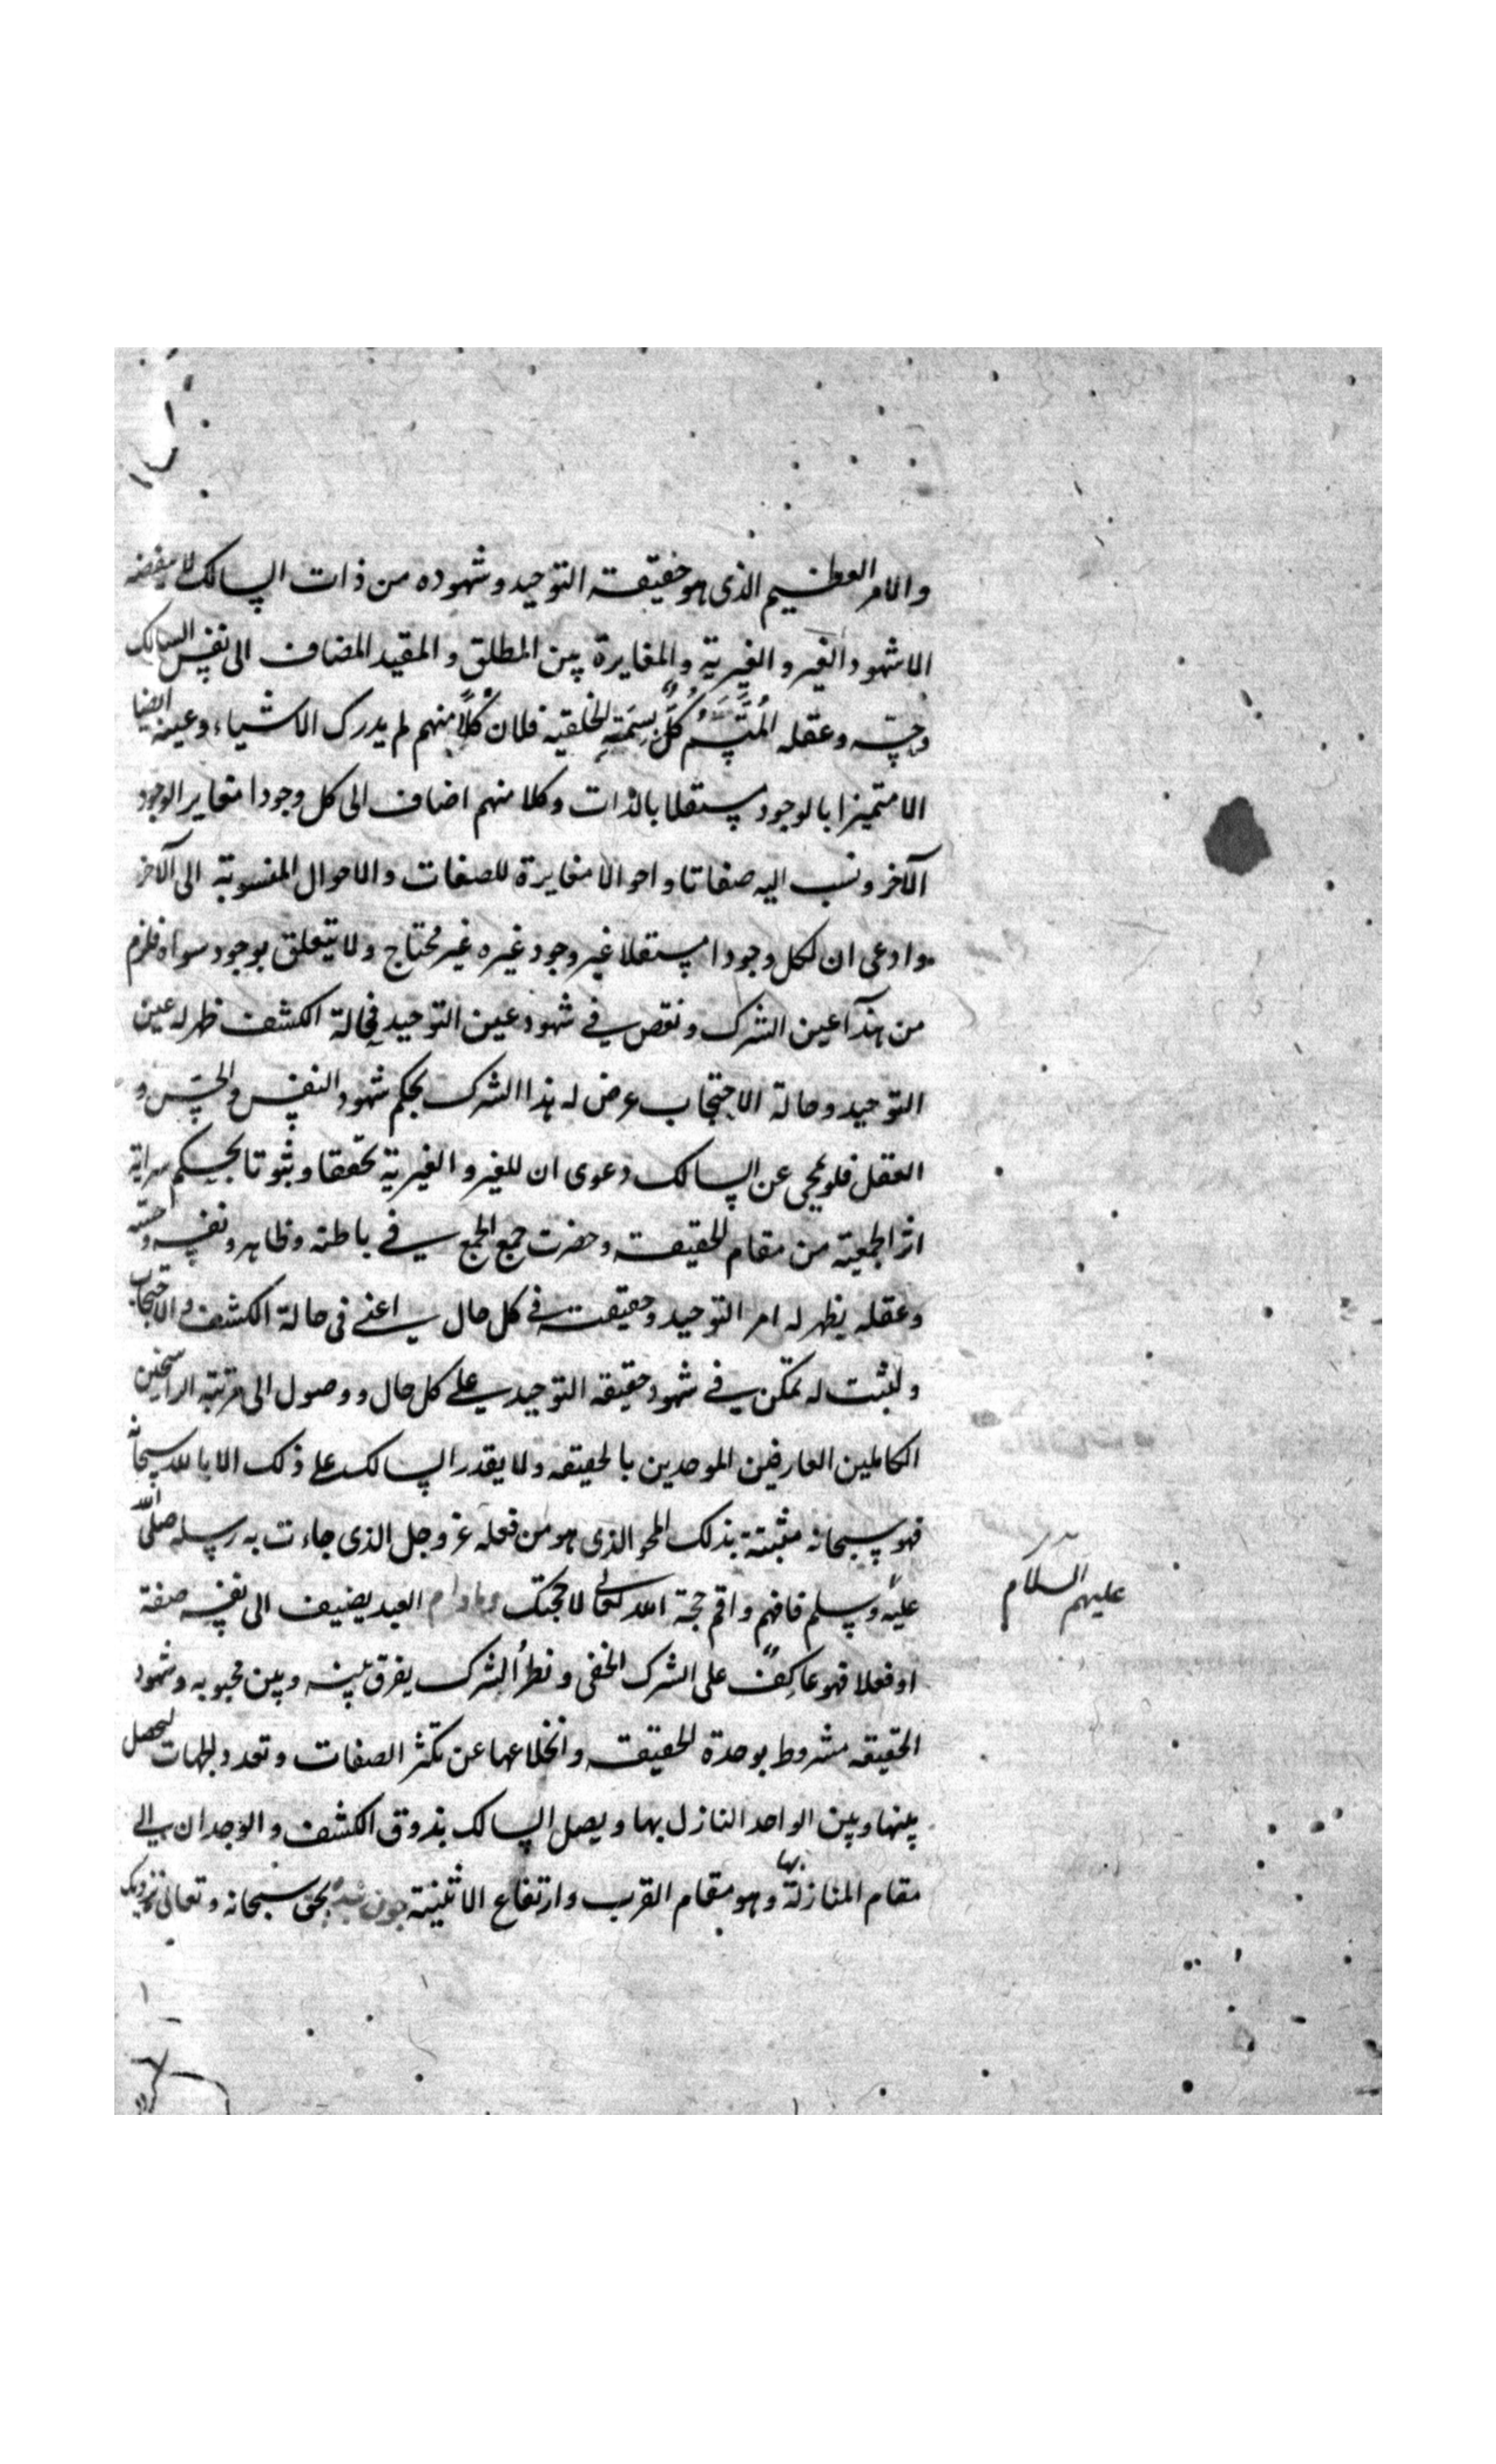 والامر العظيم الذى هو حقيقة التوحيد وشهوده من ذات السالك لا ينقضه
الا شهود الغير و الغيرية والمغايرة بين المطلق و المقيد المضاف الى نفس السالك
وحسه وعقله المُتَّسِمُ كلٌّ بِسِمَتِهِ الخلقية فلان كلًّا منهم لم يدرك الاشياء وعينه ايضا
الا متميزا بالوجود مستقلا بالذات وكلا منهم اضاف الى كل وجودا مغاير الوجود
الآخر ونسب اليه صفاتا واحوالا مغايرة للصفات والاحوال المنسوبة الى الآخر
وادعى ان لكل وجودا مستقلا غير وجود غيره غير محتاج ولا يتعلق بوجود سواه فلزم
من هذا عين الشرك ونقص فى شهود عين التوحيد فحالة الكشف ظهر له عين
التوحيد وحالة الاحتجاب عرض له هذا الشرك بحكم شهود النفس والحس و
العقل فلو محى عن السالك دعوى ان للغير و الغيرية تحققا وثبوتا بحكم سراية
اثر الجمعية من مقام الحقيقة وحضرت جمع الجمع فى باطنه وظاهره ونفسه وحسه
وعقله يظهر له امر التوحيد وحقيقته فى كل حال اعنى فى حالة الكشف والاحتجاب
ولثبت له تمكن فى شهود حقيقة التوحيد على كل حال ووصول الى مرتبة الراسخين
الكاملين العارفين الموحدين بالحقيقة ولا يقدر السالك على ذلك الا بالله سبحانه
فهو سبحانه مثبته بذلك المحو الذى هو من فعله عز وجل الذى جاءت به رسله صلى الله
عليه وسلم فافهم واقم حجة الله تعالى لا حجتك ومادام العبد يضيف الى نفسه صفة
عليهم السلام
او فعلا فهو عاكفٌ على الشرك الخفى ونظرُ الشرك يفرق بينه وبين محبوبه وشهود
الحقيقة مشروط بوحدة الحقيقة وانخلاعها عن تكثر الصفات وتعدد الجهات ليحصل
بينها وبين الواحد النازل بها ويصل السالك بذوق الكشف والوجدان الى
مقام المنازلة بها وهو مقام القرب وارتفاع الاثنينة چون بنده بحق سبحانه وتعالى نزديك